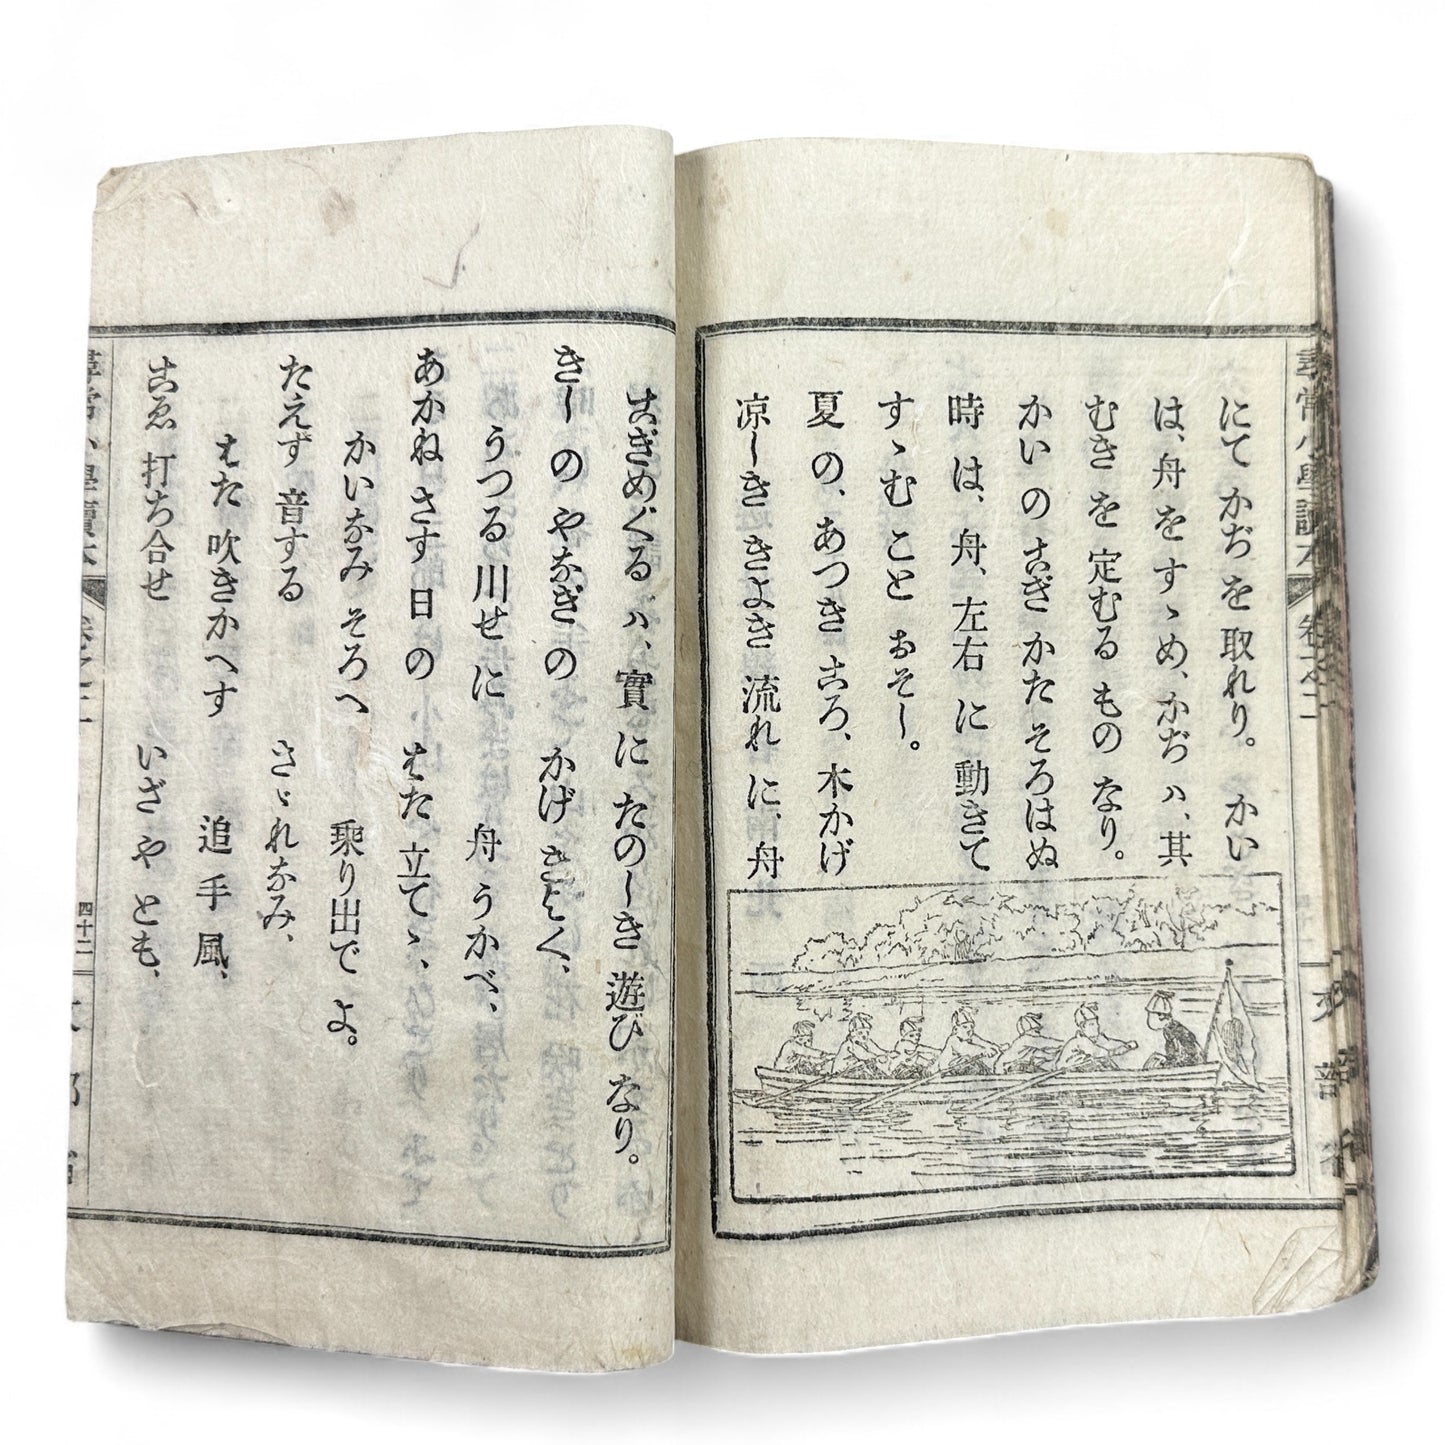 尋常小學讀本 卷之二
にて かぢ を 取れり。 かい
は、舟 を すゝめ、かぢ ハ、其
むき を 定むる もの なり。
かい の こぎ かた そろはぬ
時 は、舟、左右 に 動きて
すゝむ こと おそし。
夏 の、あつき ころ、木かげ
凉しき きよき 流れ に、舟
こぎめぐる ハ、實 に たのしき 遊び なり。
きしの やなぎの かげ きよく、
うつる 川せに 舟 うかべ、
あかね さす 日の はた 立てゝ、
かいなみ そろへ 乘り出で よ。
たえず 音する さゞれなみ、
はた 吹きかへす 追手風、
こゑ 打ち合せ いざや とも、
尋常小學讀本 卷之二 四十二 文部省